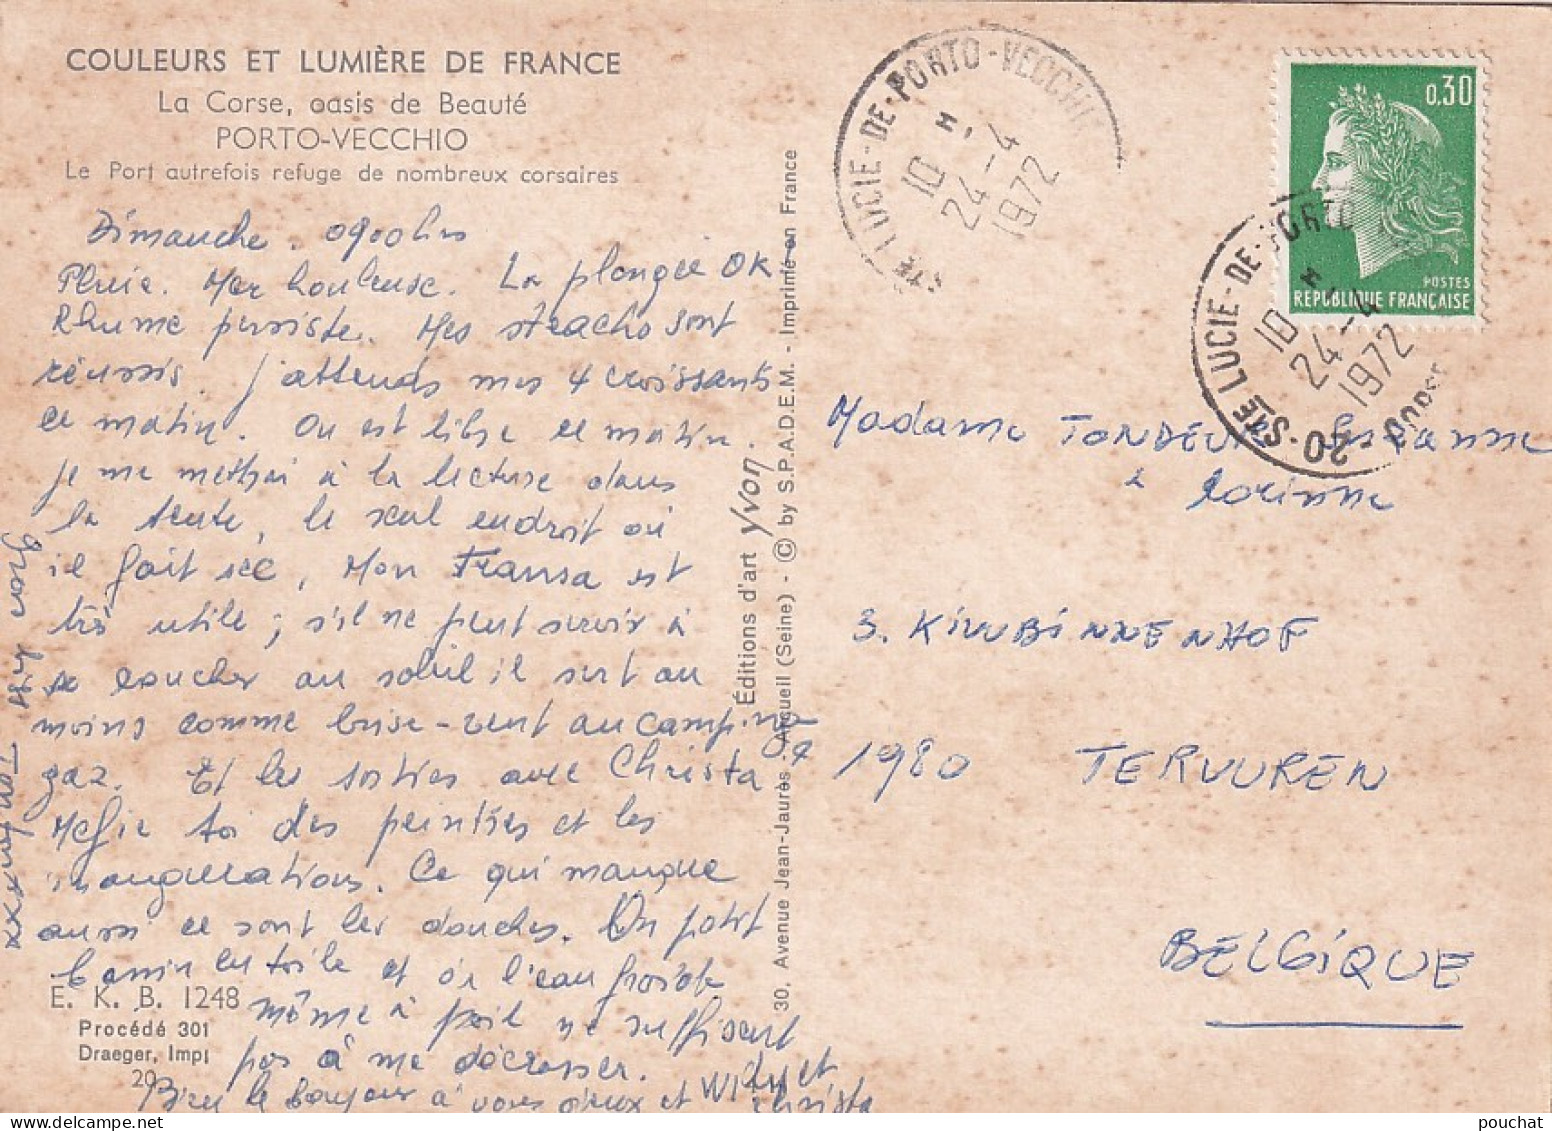 COULEURS ET LUMIÈRE DE FRANCE
La Corse, oasis de Beauté
PORTO-VECCHIO
Le Port autrefois refuge de nombreux corsaires
Dimanche. 0900hrs
Pluie. Mer houleuse. La plongée OK
Rhume persiste. Mes steachs sont
réussis. J'attends mes 4 croissants
ce matin. On est libre ce matin.
Je me mettrai à la lecture dans
la tente, le seul endroit où
il fait sec, Mon Transa est
très utile ; s'il ne peut servir à
se coucher au soleil il sert au
moins comme brise-vent au camping
gaz. Et les sorties avec Christa ?
Mefie toi des peintres et les
inaugurations. Ce qui manque
aussi ce sont les douches. On part
et l'eau froide
même à poil ne suffisent
pas à me décrasser.
Bien le bonjour à vous deux et Willy et
Christa
Gros xxx
E. K. B. 1248
Procédé 301
Draeger, Imp
20
Éditions d'art yvon
30, Avenue Jean-Jaurès - Arcueil (Seine) - © by S.P.A.D.E.M. - Imprimé en France
STE LUCIE-DE-PORTO-VECCHIO
10 H.
24-4
1972
0.30
POSTES
RÉPUBLIQUE FRANÇAISE
20-STE LUCIE-DE-PORTO
CORSE
10 H.
24-4
1972
Madame TONDEUR Suzanne
& Corinne
3. KIVUBINNENHOF
1980 TERVUREN
BELGIQUE
pouchat